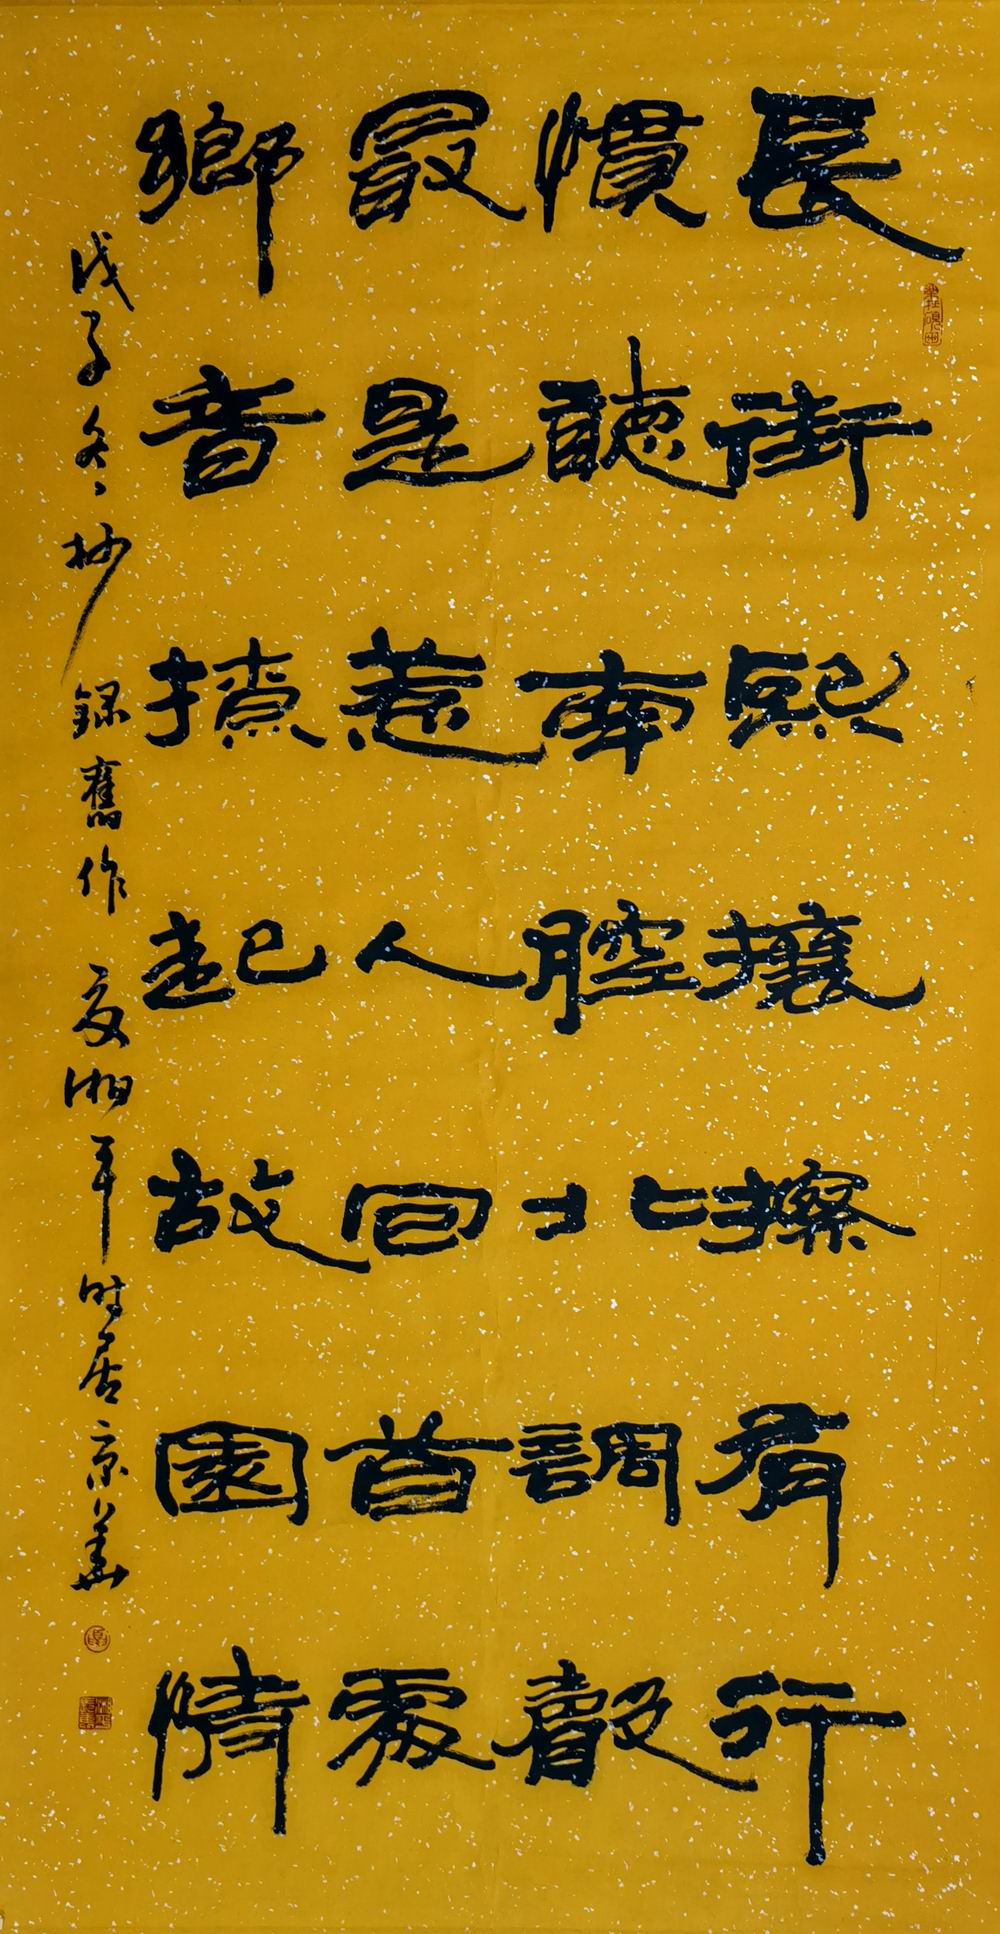 長街熙攘擦肩行
慣聽南腔北調聲
最是惹人回首處
鄉音撩起故園情
戊子冬杪錄舊作 夏湘平時居京華